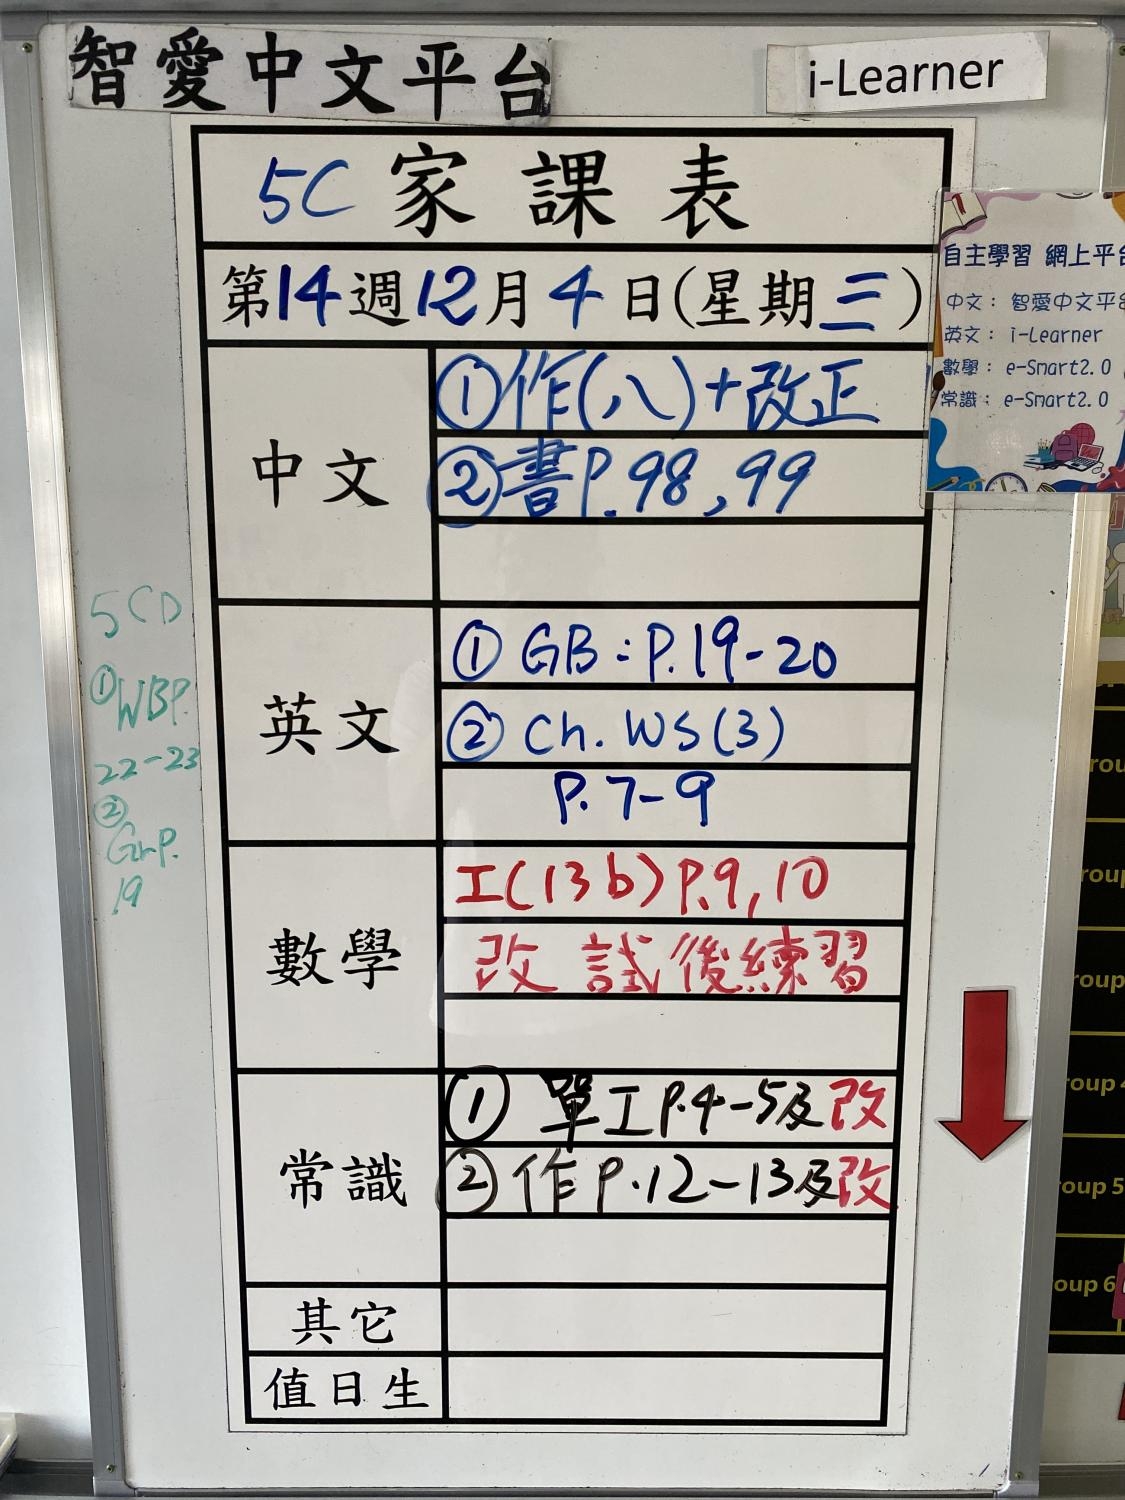 智愛中文平台
i-Learner
5C 家課表
第14週12月4日(星期三)
中文
①作(八)+改正
②書P.98,99
英文
① GB:P.19-20
② Ch. WS(3)
P.7-9
數學
工(13b)P.9,10
改 試後練習
常識
① 單工P.4-5及改
②作P.12-13及改
其它
值日生
自主學習 網上平台
中文： 智愛中文平台
英文： i-Learner
數學： e-Smart2.0
常識： e-Smart2.0
5CD
①WBP.
22-23
②
GrP.
19
roup 4
roup 5
oup 6